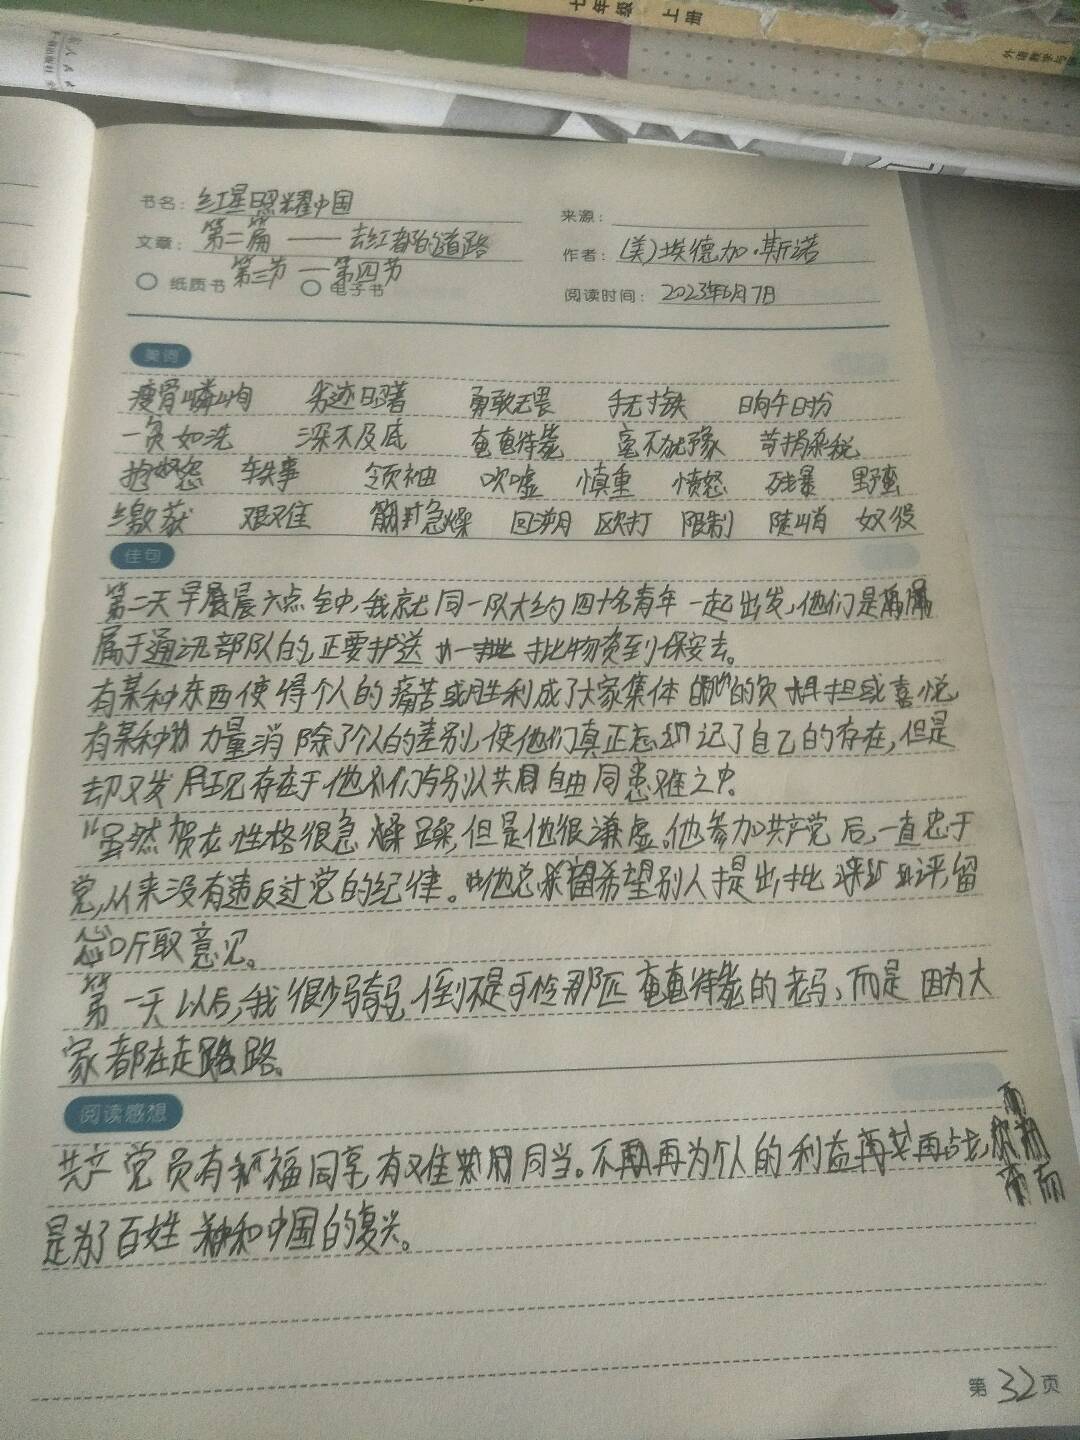 七年级 上册
书名： 红星照耀中国
来源：
文章： 第二篇 —— 去红都的道路
作者： (美)埃德加·斯诺
第三节 — 第四节
纸质书 电子书
阅读时间： 2023年6月7日
美词
瘦骨嶙峋 劣迹昭著 勇敢无畏 手无寸铁 晌午时份
一负如洗 深不及底 奄奄待毙 毫不犹豫 苛捐杂税
抱怨 轶事 领袖 吹嘘 慎重 愤怒 残暴 野蛮
缴获 艰难 急燥 回溯 殴打 限制 陡峭 奴役
佳句
第二天早晨六点钟，我就同一队大约四十名青年一起出发，他们是
属于通讯部队的，正要护送一批物资到保安去。
有某种东西使得个人的痛苦或胜利成了大家集体的负担或喜悦，
有某种力量消除了个人的差别，使他们真正忘记了自己的存在，但是
却又发现存在于他们与别人共同自由同患难之中。
“虽然贺在性格很急躁，但是他很谦虚。他参加共产党后，一直忠于
党，从来没有违反过党的纪律。他总希望别人提出批评，留
心听取意见。
第一天以后，我很少骑马，倒不是可怜那匹奄奄待毙的老马，而是因为大
家都在走路。
阅读感想
共产党员有福同享，有难同当。不再为个人的利益而再战，而
是为了百姓和中国的复兴。
第 32 页